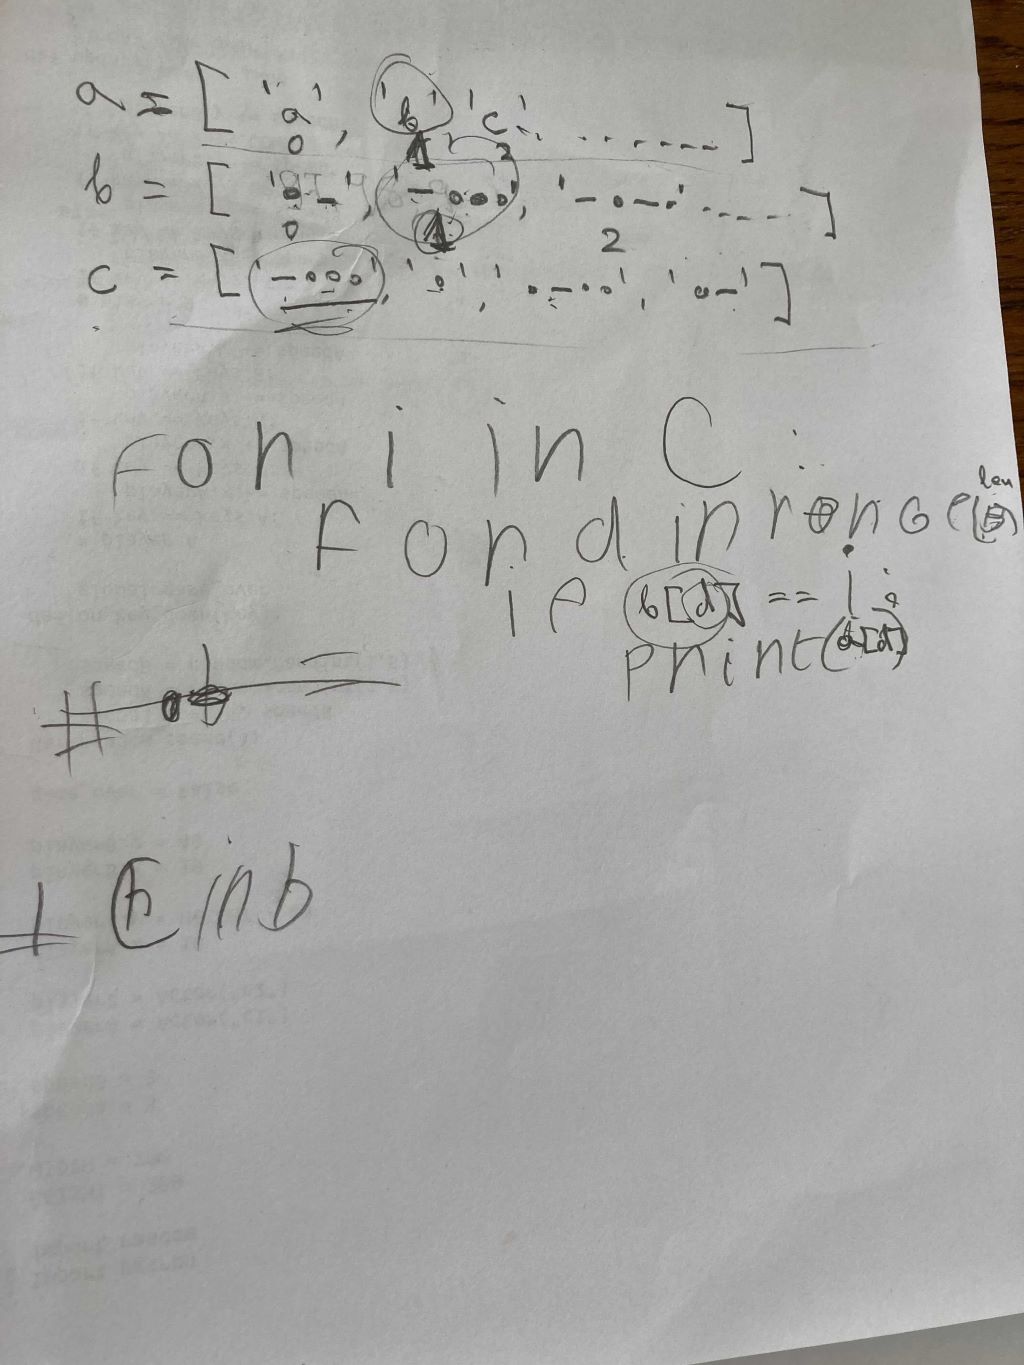 a = ['a', 'b', 'c'. . . . . . .]
0 1 2
b = ['.-', '-...', '-.-.' . . . . .]
0 1 2
c = ['-...', '.', '.-..', '.-']
For i in C :
For d in range(len
if b[d] == i :
print(a[d])
in b